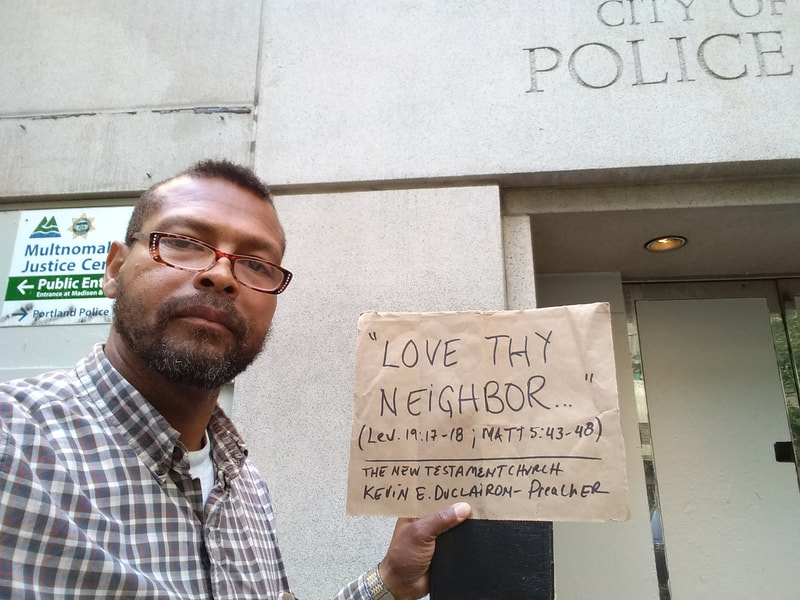 CITY OF
POLICE
Multnomah
Justice Cen
← Public Ent
Entrance at Madison &
→ Portland Police
"LOVE THY
NEIGHBOR..."
(Lev. 19:17-18; MATT 5:43-48)
THE NEW TESTAMENT CHURCH
KEVIN E. DUCLAIRON- PreacHER